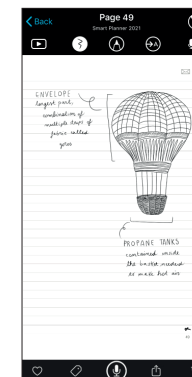 Back
Page 49
Smart Planner 2021
A
A
ENVELOPE
longest part,
combination of
multiple strips of
fabric called
gores
PROPANE TANKS
contained inside
the basket needed
to make hot air